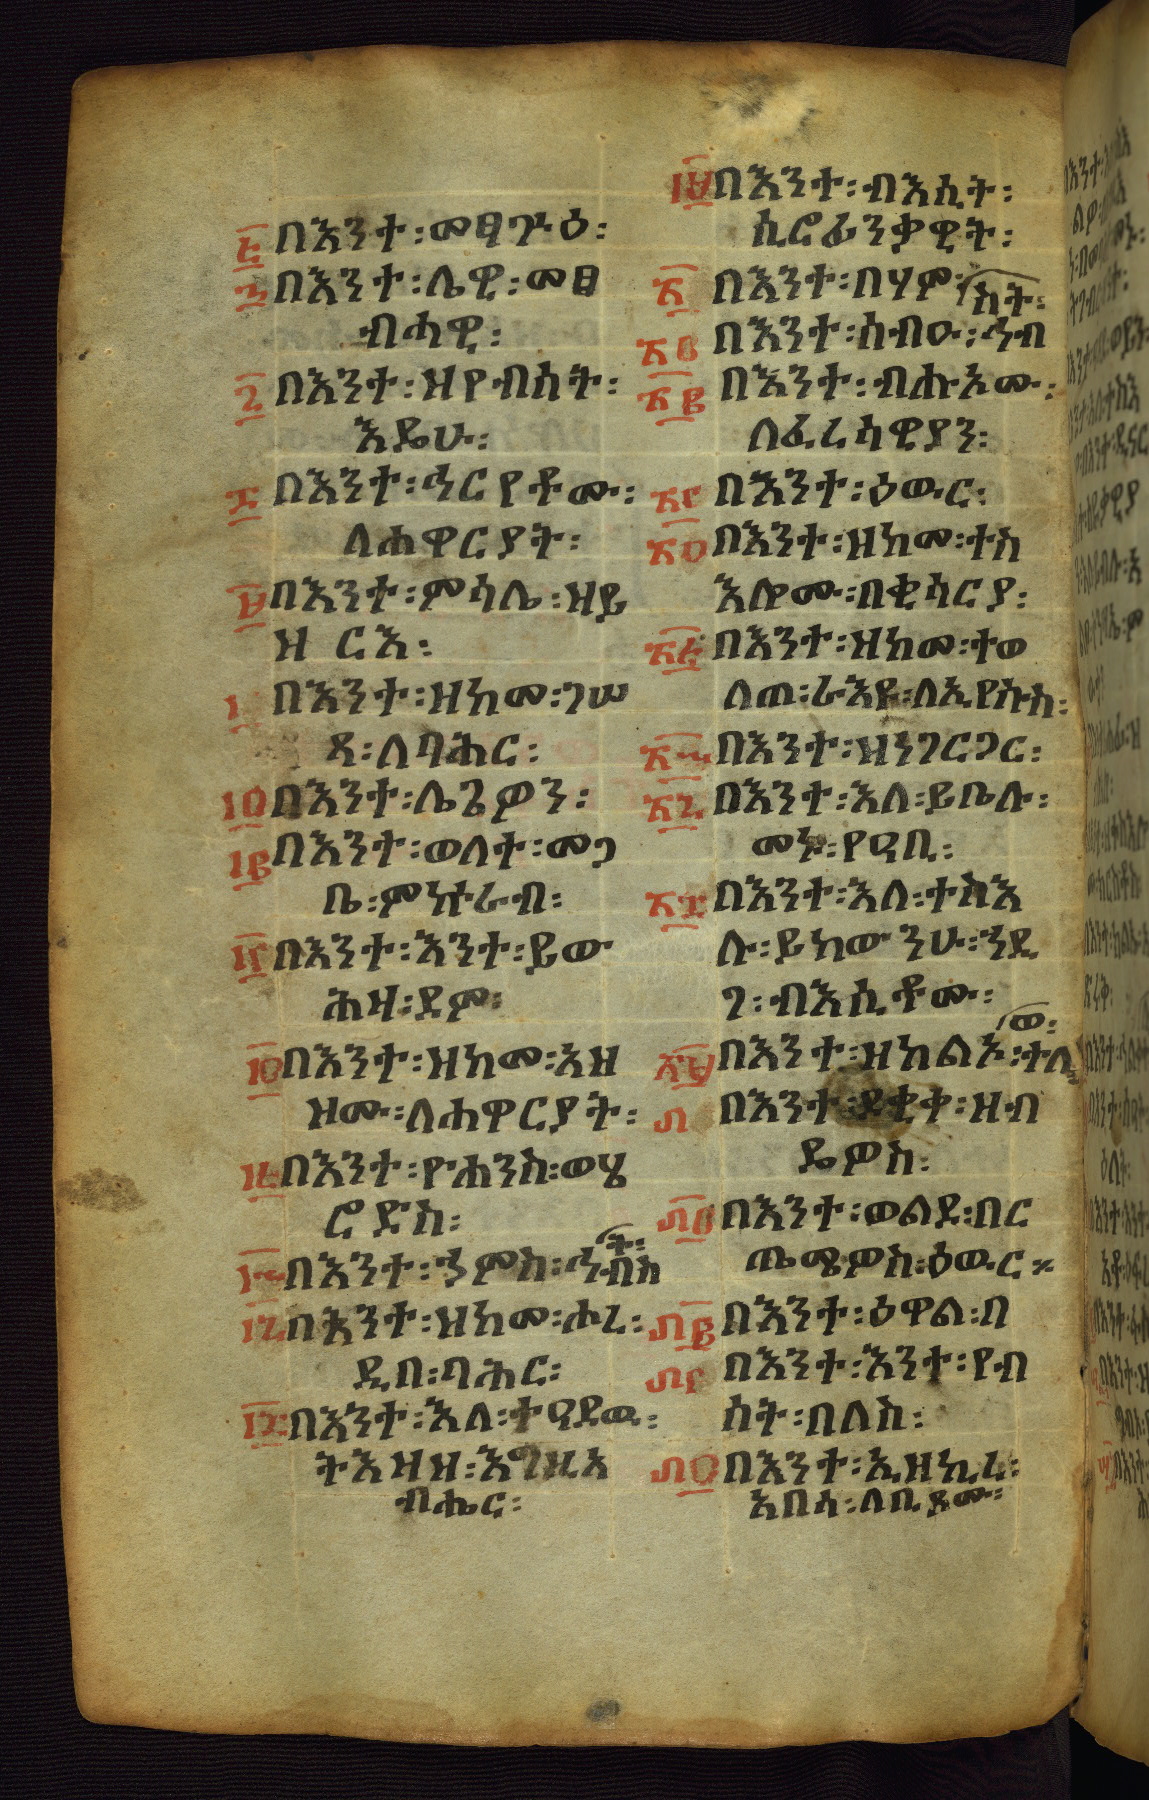 ፭ በእንተ፡መፃጕዕ፡
፮ በእንተ፡ሌዊ፡መፀ
ብሓዊ፡
፯ በእንተ፡ዘየብሰት፡
እዴሁ፡
፰ በእንተ፡ኅርየቶሙ፡
ለሐዋርያት፡
፱ በእንተ፡ምሳሌ፡ዘይ
ዝ ርእ፡
፲ በእንተ፡ዘከመ፡ገሠ
ጾ፡ለባሕር፡
፲፩ በእንተ፡ሌጌዎን፡
፲፪ በእንተ፡ወለተ፡መጋ
ቤ፡ምኵራብ፡
፲፫ በእንተ፡እንተ፡ይው
ሕዛ፡ደም፡
፲፬ በእንተ፡ዘከመ፡አዘ
ዞሙ፡ለሐዋርያት፡
፲፭ በእንተ፡ዮሐንስ፡ወሄ
ሮድስ፡
፲፮ በእንተ፡ኃምስ፡ኅብስ
ት፡
፲፯ በእንተ፡ዘከመ፡ሖረ፡
ዲበ፡ባሕር፡
፲፰ በእንተ፡እለ፡ተዓደዉ፡
ትእዛዘ፡እግዚአ
ብሔር፡
፲፱ በእንተ፡ብእሲት፡
ሲሮፊንቃዊት፡
፳ በእንተ፡በሃም፡
ስት፡
፳፩ በእንተ፡ሰብዑ፡ኅብ
፳፪ በእንተ፡ብሑአሙ፡
ለፈሪሳዊያን፡
፳፫ በእንተ፡ዕውር፡
፳፬ በእንተ፡ዘከመ፡ተስ
እሎሙ፡በቂሳርያ፡
፳፭ በእንተ፡ዘከመ፡ተወ
ለጠ፡ራእዩ፡ለኢየሱስ፡
፳፮ በእንተ፡ዘነገርጋር፡
፳፯ በእንተ፡እለ፡ይቤሉ፡
መኑ፡የዓቢ፡
፳፰ በእንተ፡እለ፡ተስእ
ሉ፡ይከውንሁ፡ኀዲ
ገ፡ብእሲቶሙ፡
ወ፡
፳፱ በእንተ፡ዘከልአ፡ተሊ
፴ በእንተ፡ደቂቀ፡ዘብ
ዴዎስ፡
፴፩ በእንተ፡ወልደ፡በር
ጤሜዎስ፡ዕውር።
፴፪ በእንተ፡ዕዋል፡በ
፴፫ በእንተ፡እንተ፡የብ
ሰት፡በለስ፡
፴፬ በእንተ፡ኢዘኪረ፡
አበሳ፡ለቢጾሙ፡